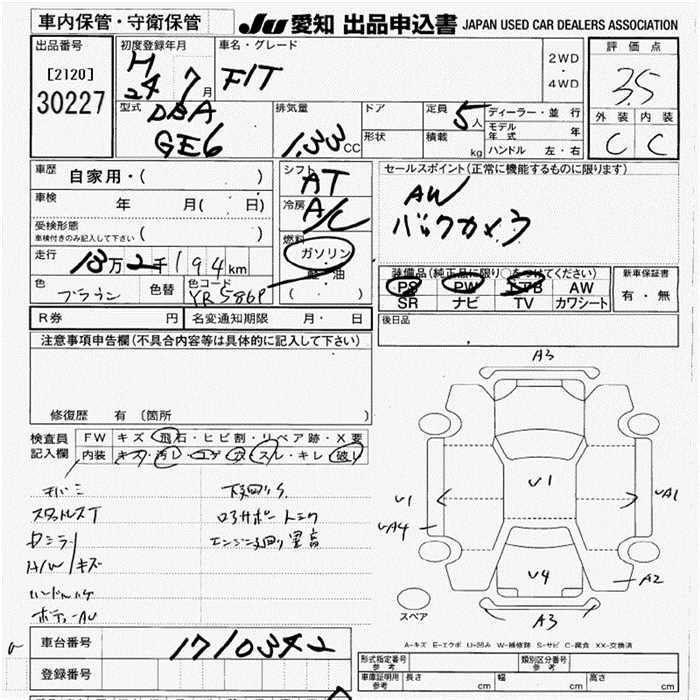 車内保管・守衛保管
JU 愛知 出品申込書 JAPAN USED CAR DEALERS ASSOCIATION
出品番号
[2120]
30227
初度登録年月
H
24 7月
車名・グレード
FIT
2WD
・
4WD
評価点
3.5
外装 内装
C C
型式
DBA
GE6
排気量
1.33 CC
ドア
形状
定員 5人
積載 kg
ディーラー・並行
モデル年式 年
ハンドル 左・右
車歴 自家用・( )
車検 年 月( 日)
受検形態
車検付きのみ記入して下さい ( )
走行 13万2千194km
色 ブラウン 色替 色コード YR586P
シフト AT
冷房 A/C
燃料
ガソリン
軽・油
( )
セールスポイント(正常に機能するものに限ります)
AW
バックカメラ
装備品(純正品に限り○をつけてください)
PS PW AW
SR ナビ TV カワシート
新車保証書
有・無
後日品
R券 円 名変通知期限 月・ 日
注意事項申告欄(不具合内容等は具体的に記入して下さい)
修復歴 有 (箇所 )
検査員
記入欄
FW キズ・飛石・ヒビ割・リペア跡・X要
内装 キズ・汚レ・コゲ・穴・スレ・キレ・破レ
スタットレスT
H/W/キズ
A3
V1
V1
VA4
VA1
V4
A2
A3
スペア
A-キズ E-エクボ U-凹み W-補修跡 S-サビ C-腐食 XX-交換済
車台番号 1710342
登録番号
形式指定番号
参考
類別区分番号
参考
車庫証明用
参考
長さ cm 幅 cm 高さ cm